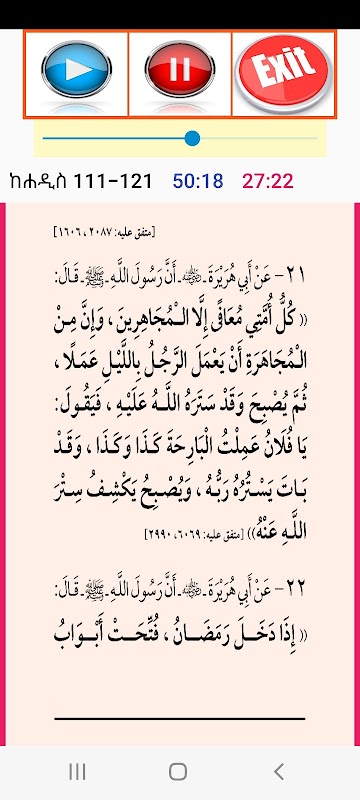 Exit
ከሐዲስ 111-121 50:18 27:22
[متفق عليه: ٢٠٨٧، ١٦٠٦]
٢١- عَنْ أَبِي هُرَيْرَةَ ـ رضي الله عنه ـ أَنَّ رَسُولَ اللَّهِ ـ ﷺ ـ قَالَ:
(( كُلُّ أُمَّتِي مُعَافًى إِلَّا الْمُجَاهِرِينَ ، وَإِنَّ مِنَ
الْمُجَاهَرَةِ أَنْ يَعْمَلَ الرَّجُلُ بِاللَّيْلِ عَمَلًا ،
ثُمَّ يُصْبِحَ وَقَدْ سَتَرَهُ اللَّهُ عَلَيْهِ ، فَيَقُولَ:
يَا فُلَانُ عَمِلْتُ الْبَارِحَةَ كَذَا وَكَذَا ، وَقَدْ
بَاتَ يَسْتُرُهُ رَبُّهُ ، وَيُصْبِحُ يَكْشِفُ سِتْرَ
اللَّهِ عَنْهُ)) [متفق عليه: ٦٠٦٩، ٢٩٩٠]
٢٢- عَنْ أَبِي هُرَيْرَةَ ـ رضي الله عنه ـ أَنَّ رَسُولَ اللَّهِ ـ ﷺ ـ قَالَ:
(( إِذَا دَخَلَ رَمَضَانُ ، فُتِّحَتْ أَبْوَابُ